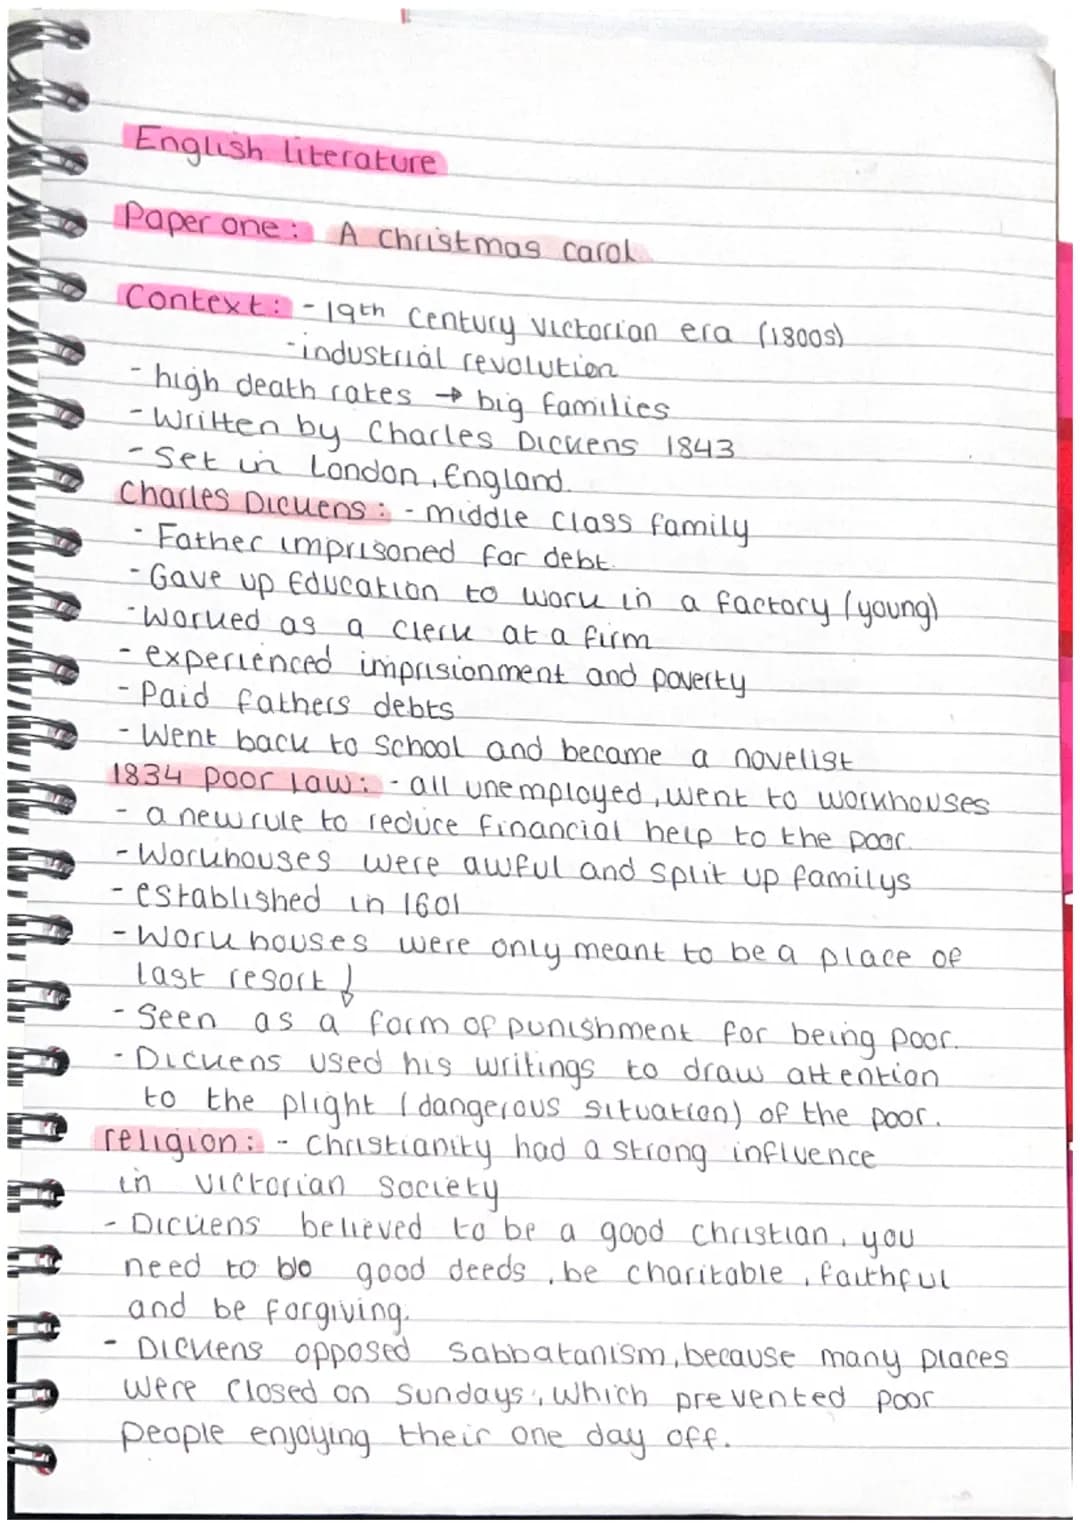 English literature
Paper one: A christmas carol
Context: - 19th Century victorian era (1800s)
- industrial revolution
- high death rates → big families
- Written by Charles Dickens 1843
- Set in London, England.
Charles Dickens: - middle class family
- Father imprisoned for debt.
- Gave up Education to work in a factory (young)
- Worked as a clerk at a firm
- experienced imprisionment and poverty
- Paid fathers debts
- Went back to school and became a novelist
1834 poor law: - all unemployed, went to workhouses
- a new rule to reduce financial help to the poor.
- Workhouses were awful and split up familys
- established in 1601
- Workhouses were only meant to be a place of
last resort ↓
- Seen as a form of punishment for being poor.
- Dickens used his writings to draw attention
to the plight (dangerous situation) of the poor.
religion: - christianity had a strong influence
in victorian society
- Dickens believed to be a good christian, you
need to do good deeds, be charitable, faithful
and be forgiving.
- Dickens opposed Sabbatanism, because many places
were closed on Sundays, which prevented poor
people enjoying their one day off.